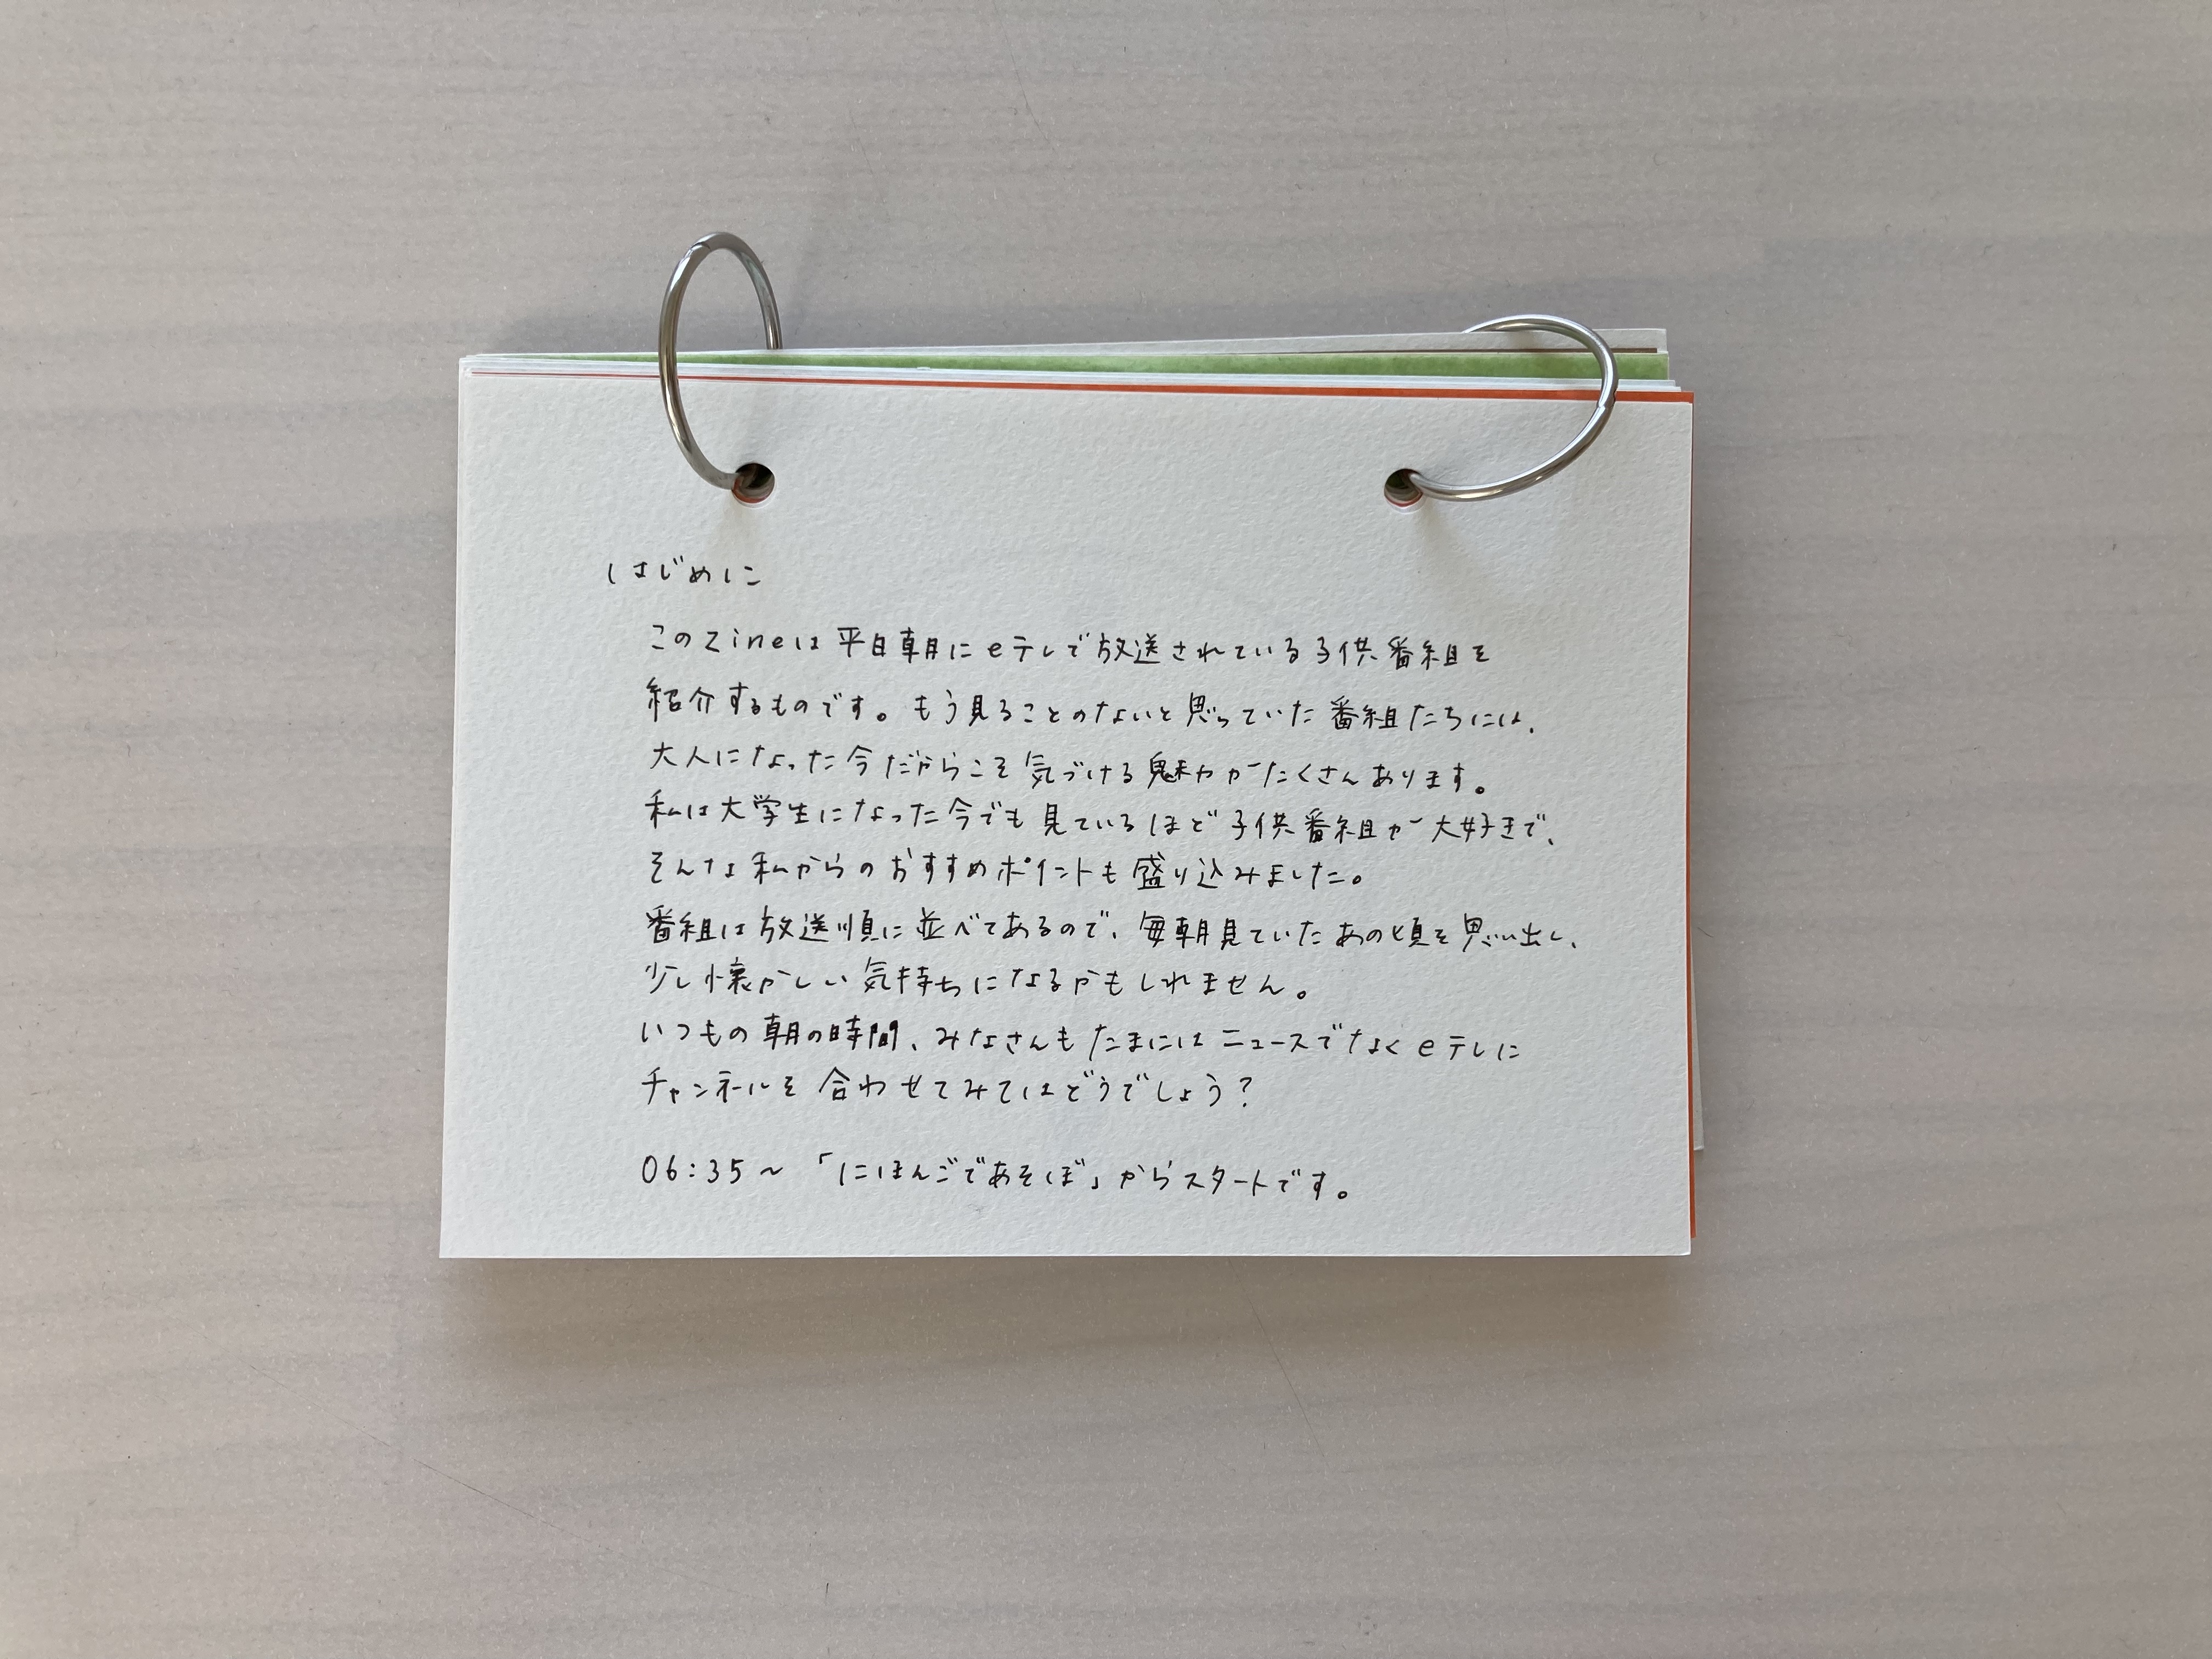 はじめに
このZineは平日朝にeテレで放送されている子供番組を
紹介するものです。もう見ることのないと思っていた番組たちには、
大人になった今だからこそ気づける魅力がたくさんあります。
私は大学生になった今でも見ているほど子供番組が大好きで、
そんな私からのおすすめポイントも盛り込みました。
番組は放送順に並べてあるので、毎朝見ていたあの頃を思い出し、
少し懐かしい気持ちになるかもしれません。
いつもの朝の時間、みなさんもたまにはニュースでなくeテレに
チャンネルを合わせてみてはどうでしょう？
06:35~「にほんごであそぼ」からスタートです。